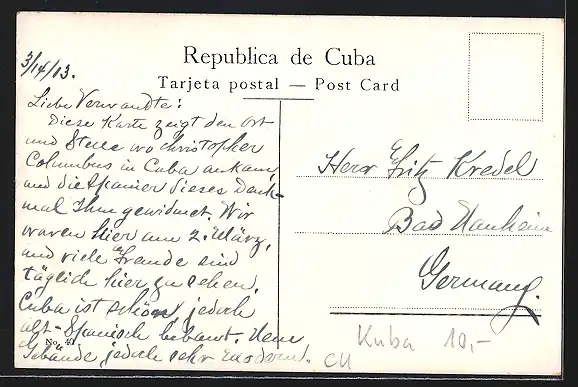 Republica de Cuba
Tarjeta postal — Post Card
3/14/13.
Liebe Verwandte:
Diese Karte zeigt den Ort
und Stelle wo Christopher
Columbus in Cuba ankam,
und die Spanier dieses Denk-
mal Ihm gewidmet. Wir
waren hier am 2. März,
und viele Fremde sind
täglich hier zu sehen.
Cuba ist schön, jedoch
alt-Spanisch bebaut. Neue
Gebäude jedoch sehr modern.
No. 40
Herr Fritz Kredel
Bad Nauheim
Germany.
Kuba 10,-
CU